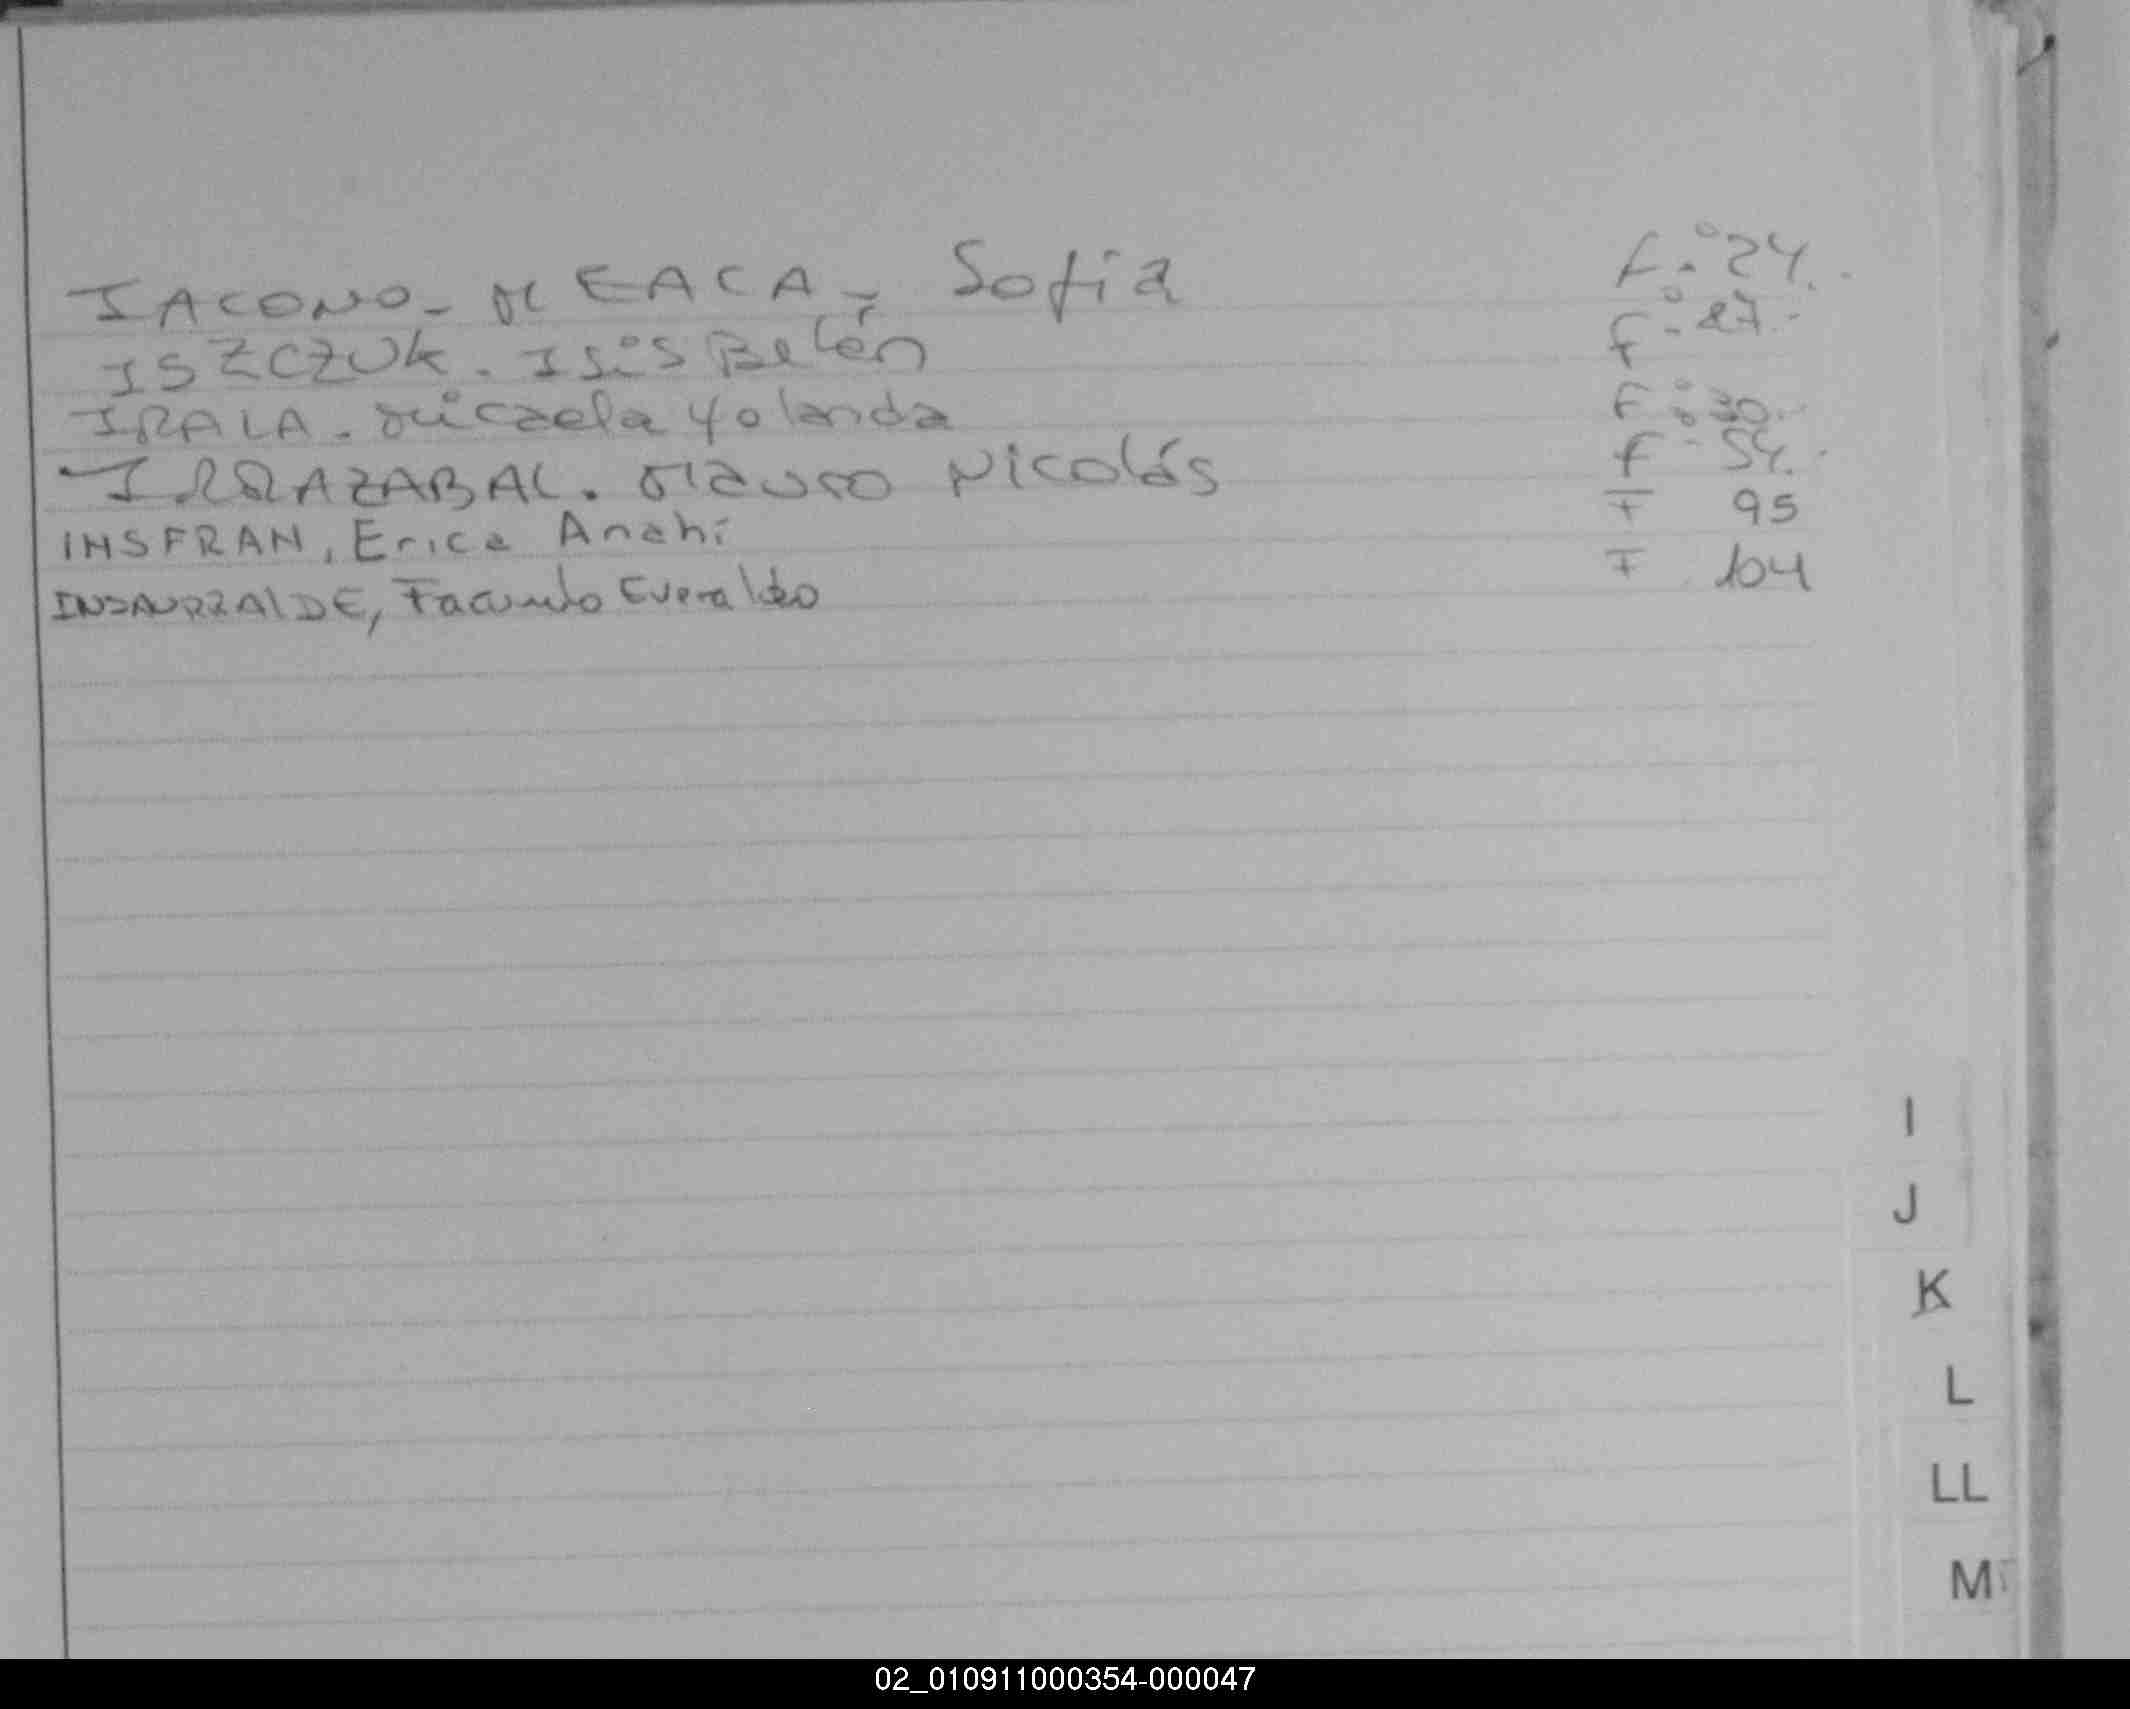 IACONO - MEACA, Sofia F.º 24.-
ISZCZUK. Isis Belén F.º 27.-
IRALA. Micaela Yolanda F.º 30.-
IRRAZABAL. Mauro Nicolás F.º 54.-
INSFRAN, Erica Anahí F 95
INSAURRALDE, Facundo Everaldo F 104
I
J
K
L
LL
M
02_010911000354-000047